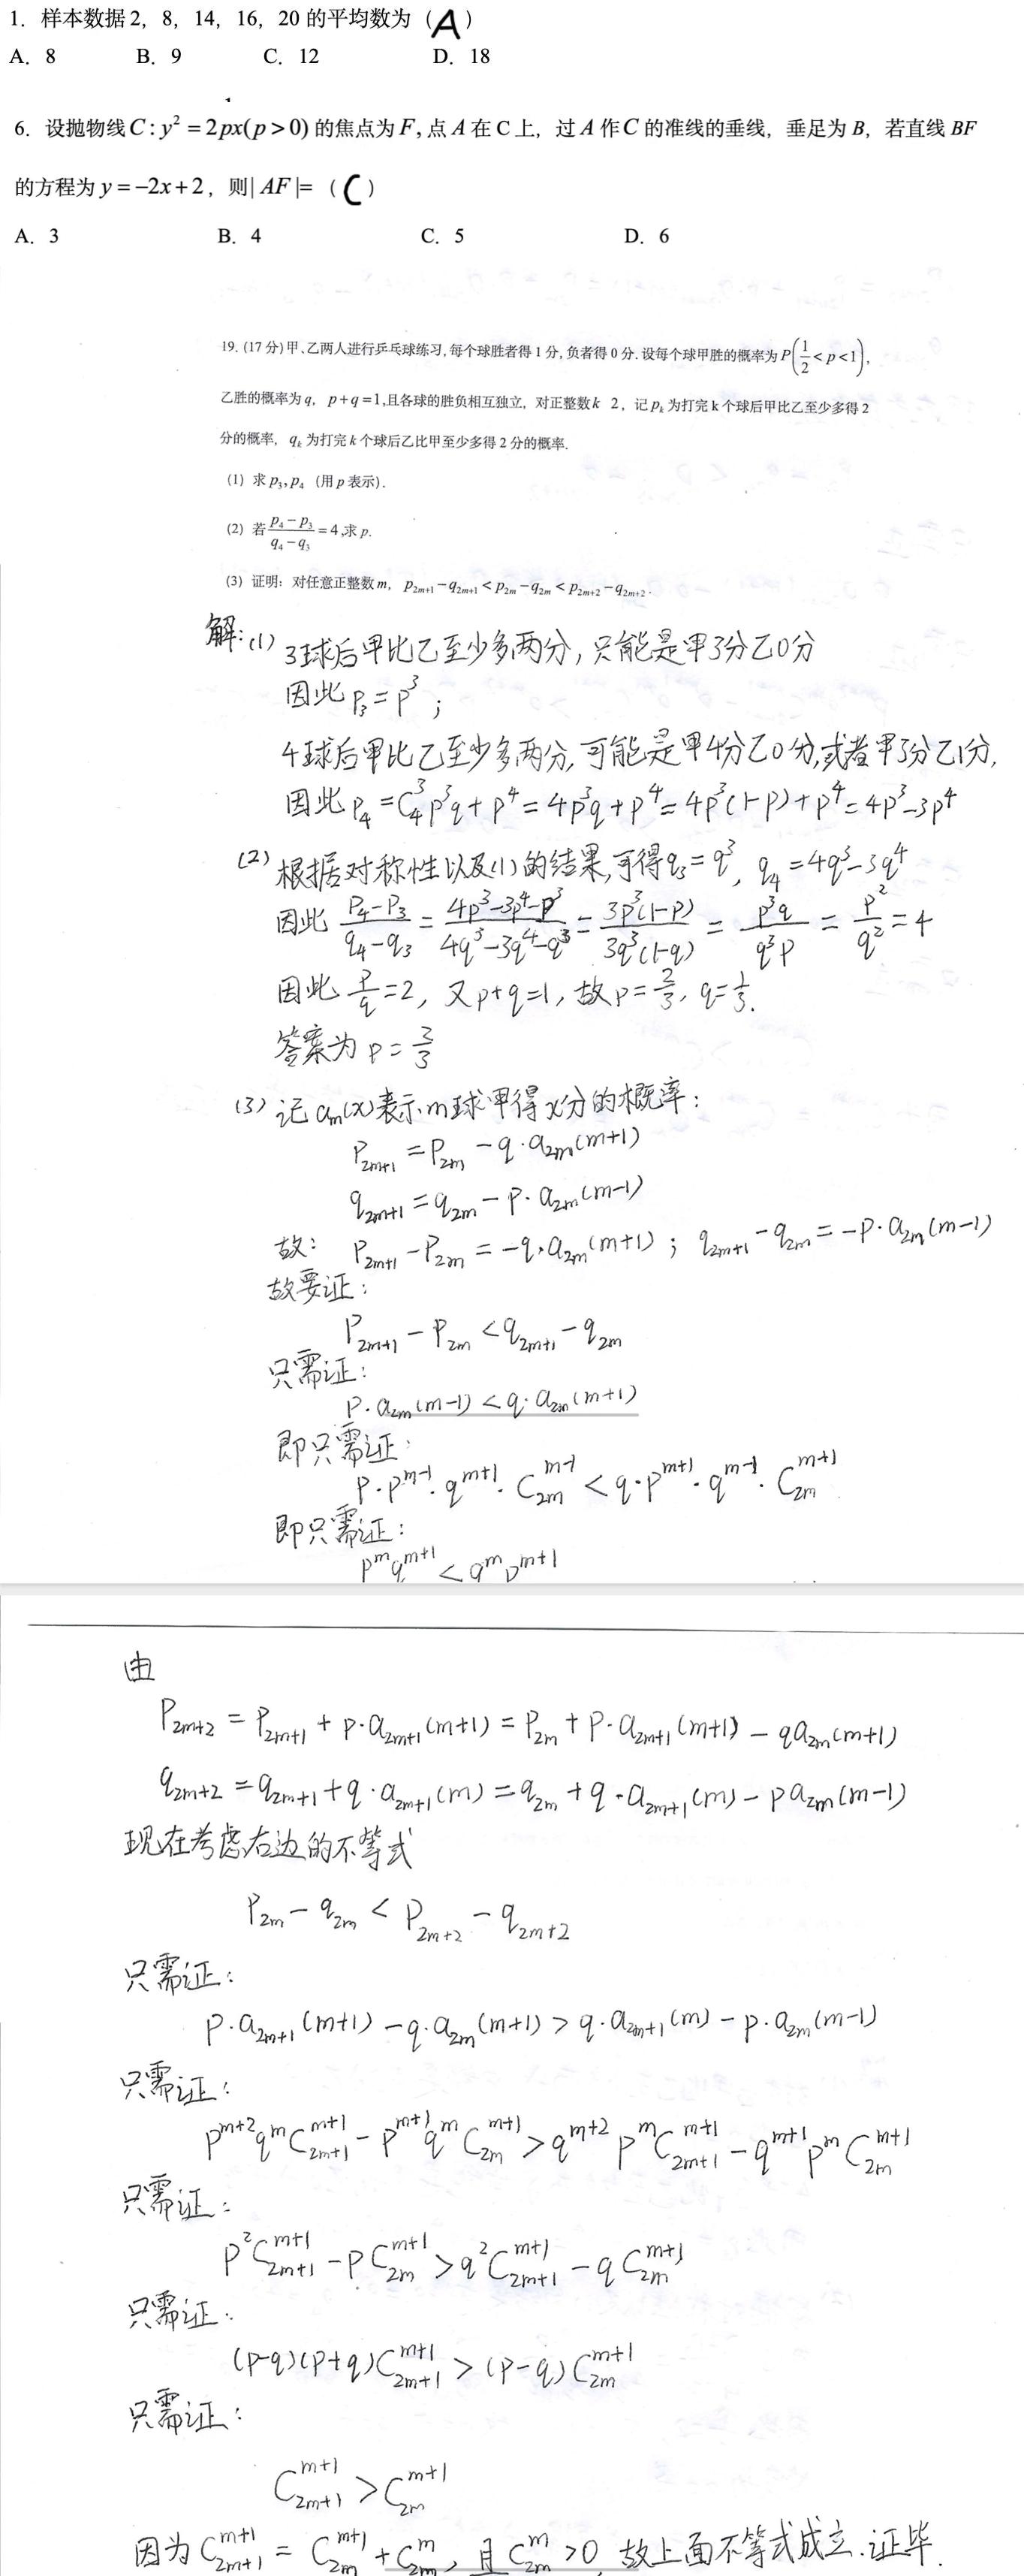 1. 样本数据 2, 8, 14, 16, 20 的平均数为 (A)
A. 8 B. 9 C. 12 D. 18
6. 设抛物线 C: y² = 2px(p > 0) 的焦点为 F, 点 A 在 C 上, 过 A 作 C 的准线的垂线, 垂足为 B, 若直线 BF
的方程为 y = -2x + 2, 则 | AF |= (C)
A. 3 B. 4 C. 5 D. 6
19. (17 分) 甲、乙两人进行乒乓球练习, 每个球胜者得 1 分, 负者得 0 分. 设每个球甲胜的概率为 P(1/2 < p < 1),
乙胜的概率为 q, p + q = 1, 且各球的胜负相互独立, 对正整数 k 2, 记 p_k 为打完 k 个球后甲比乙至少多得 2
分的概率, q_k 为打完 k 个球后乙比甲至少多得 2 分的概率.
(1) 求 p₃, p₄ (用 p 表示).
(2) 若 (p₄ - p₃)/(q₄ - q₃) = 4, 求 p.
(3) 证明: 对任意正整数 m, p_{2m+1} - q_{2m+1} < p_{2m} - q_{2m} < p_{2m+2} - q_{2m+2}.
解: (1) 3球后甲比乙至少多两分, 只能是甲3分乙0分
因此 P₃ = p³;
4球后甲比乙至少多两分, 可能是甲4分乙0分, 或者甲3分乙1分,
因此 P₄ = C₄³p³q + p⁴ = 4p³q + p⁴ = 4p³(1-p) + p⁴ = 4p³-3p⁴
(2) 根据对称性以及(1)的结果, 可得 q₃ = q³, q₄ = 4q³-3q⁴
因此 (P₄-P₃)/(q₄-q₃) = (4p³-3p⁴-p³)/(4q³-3q⁴-q³) = 3p³(1-p)/3q³(1-q) = p³q/q³p = p²/q² = 4
因此 p/q = 2, 又 p+q=1, 故 p = 2/3, q = 1/3.
答案为 p = 2/3
(3) 记 a_m(x) 表示 m 球甲得 x 分的概率:
P_{2m+1} = P_{2m} - q·a_{2m}(m+1)
q_{2m+1} = q_{2m} - p·a_{2m}(m-1)
故: P_{2m+1} - P_{2m} = -q·a_{2m}(m+1); q_{2m+1} - q_{2m} = -p·a_{2m}(m-1)
故要证:
P_{2m+1} - P_{2m} < q_{2m+1} - q_{2m}
只需证:
p·a_{2m}(m-1) < q·a_{2m}(m+1)
即只需证:
p·p^{m-1}·q^{m+1}·C_{2m}^{m-1} < q·p^{m+1}·q^{m-1}·C_{2m}^{m+1}
即只需证:
p^m q^{m+1} < q^m p^{m+1}
由
P_{2m+2} = P_{2m+1} + p·a_{2m+1}(m+1) = P_{2m} + p·a_{2m+1}(m+1) - q a_{2m}(m+1)
q_{2m+2} = q_{2m+1} + q·a_{2m+1}(m) = q_{2m} + q·a_{2m+1}(m) - p a_{2m}(m-1)
现在考虑右边的不等式
P_{2m} - q_{2m} < P_{2m+2} - q_{2m+2}
只需证:
p·a_{2m+1}(m+1) - q·a_{2m}(m+1) > q·a_{2m+1}(m) - p·a_{2m}(m-1)
只需证:
p^{m+2} q^m C_{2m+1}^{m+1} - p^{m+1} q^m C_{2m}^{m+1} > q^{m+2} p^m C_{2m+1}^{m+1} - q^{m+1} p^m C_{2m}^{m+1}
只需证:
p² C_{2m+1}^{m+1} - p C_{2m}^{m+1} > q² C_{2m+1}^{m+1} - q C_{2m}^{m+1}
只需证:
(p-q)(p+q) C_{2m+1}^{m+1} > (p-q) C_{2m}^{m+1}
只需证:
C_{2m+1}^{m+1} > C_{2m}^{m+1}
因为 C_{2m+1}^{m+1} = C_{2m}^{m+1} + C_{2m}^{m}, 且 C_{2m}^{m} > 0, 故上面不等式成立. 证毕.